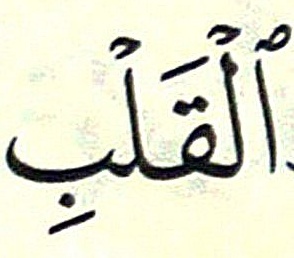 ٱلۡقَلۡبِ